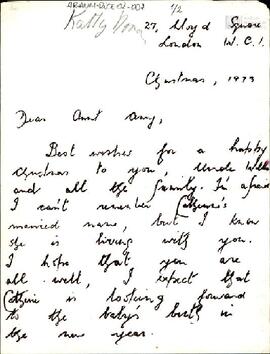 1/2
Katty
27, Lloyd Square
London W.C.1.
Christmas, 1973
Dear Aunt Amy,
Best wishes for a happy
Christmas to you, Uncle Willie
and all the family. I'm afraid
I can't remember Catherine's
married name, but I know
she is living with you.
I hope that you are
all well, I expect that
Catherine is looking forward
to the baby's birth in
the new year.